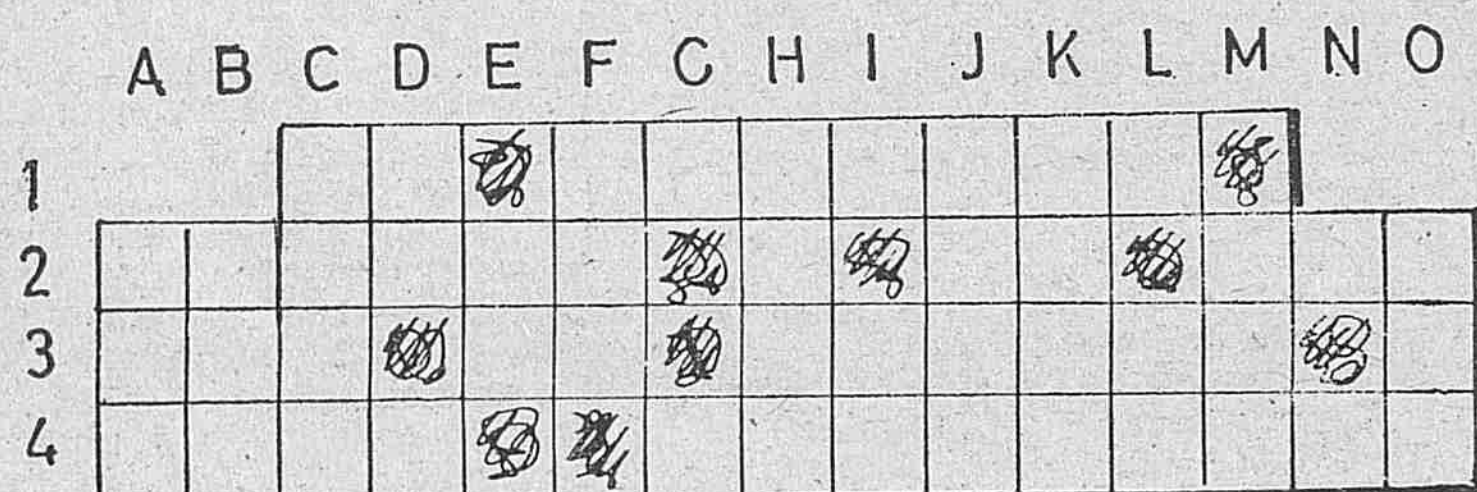 A B C D E F G H I J K L M N O
1
2
3
4